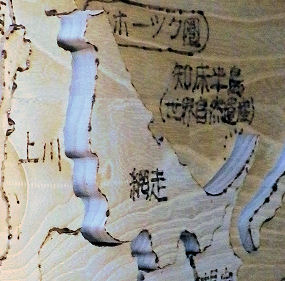 ホーツク圏
知床半島
(世界自然遺産)
上川
網走